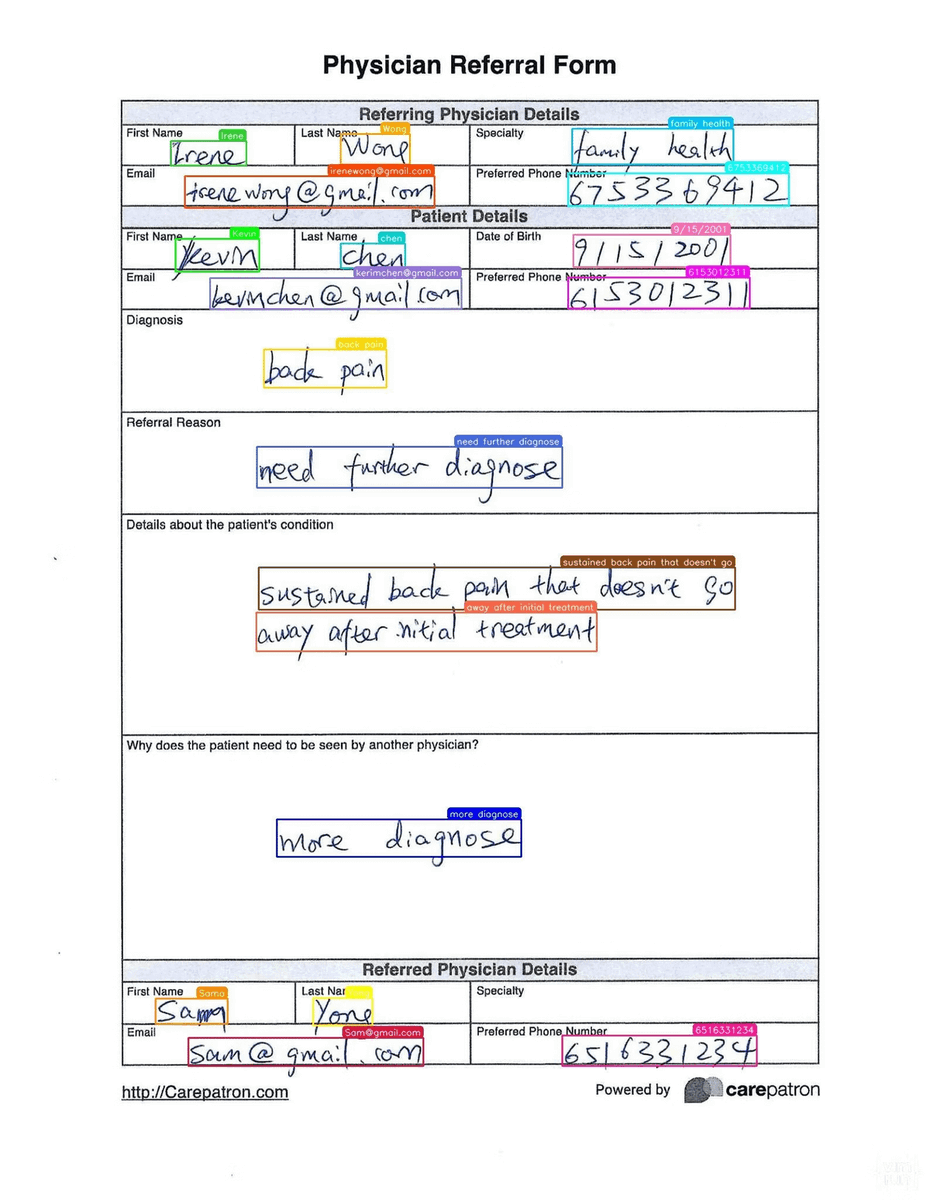 Physician Referral Form
Referring Physician Details
First Name Irene Last Name Wong Specialty family health
Irene Wong family health
Email irenewong@gmail.com Preferred Phone Number 6753369412
irenewong@gmail.com 6753369412
Patient Details
First Name Kevin Last Name chen Date of Birth 9/15/2001
Kevin chen 9/15/2001
Email kerimchen@gmail.com Preferred Phone Number 6153012311
kevinchen@gmail.com 6153012311
Diagnosis
back pain
back pain
Referral Reason
need further diagnose
need further diagnose
Details about the patient's condition
sustained back pain that doesn't go
sustained back pain that doesn't go
away after initial treatment
away after initial treatment
Why does the patient need to be seen by another physician?
more diagnose
more diagnose
Referred Physician Details
First Name Sama Last Nar Specialty
Sam Yong
Email Sam@gmail.com Preferred Phone Number 6516331234
sam@gmail.com 6516331234
http://Carepatron.com Powered by carepatron